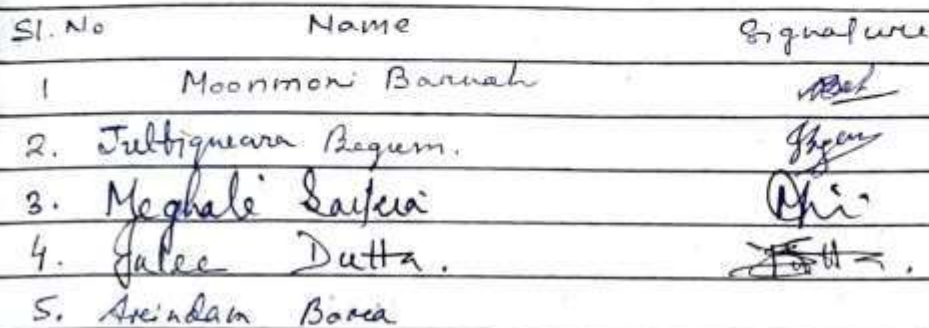 Sl. No Name Signature
1 Moonmoni Baruah
2. Begum.
3. Meghali Saikia
4. Julee Dutta.
5. Arindam Bora